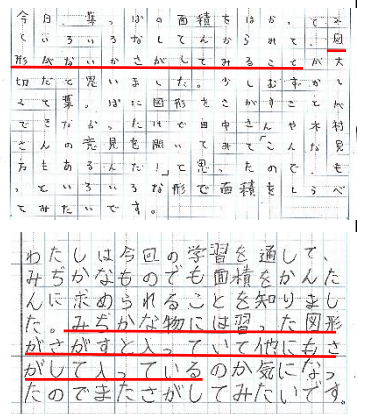 今日、葉っぱの面積をはかってみ
ていろいろなしてんからみて、図
形がないかさがしてみることが大
切だと思いました。少しむずかし
くて葉っぱに図形をさがすことが
できなかったけど田中さんや木村
さんの意見を聞いてみて「こんな見
方もあるんだ!」と思ったので、も
っといろいろな形で面積をしらべ
てみたいです。
わたしは今回の学習を通して、
みぢかなものでも面積をかんた
んに求められることを知りまし
た。みぢかな物には習った図形
がさがすと入っていて他にもさ
がして入っているのか気になっ
たのでまたさがしてみたいです。